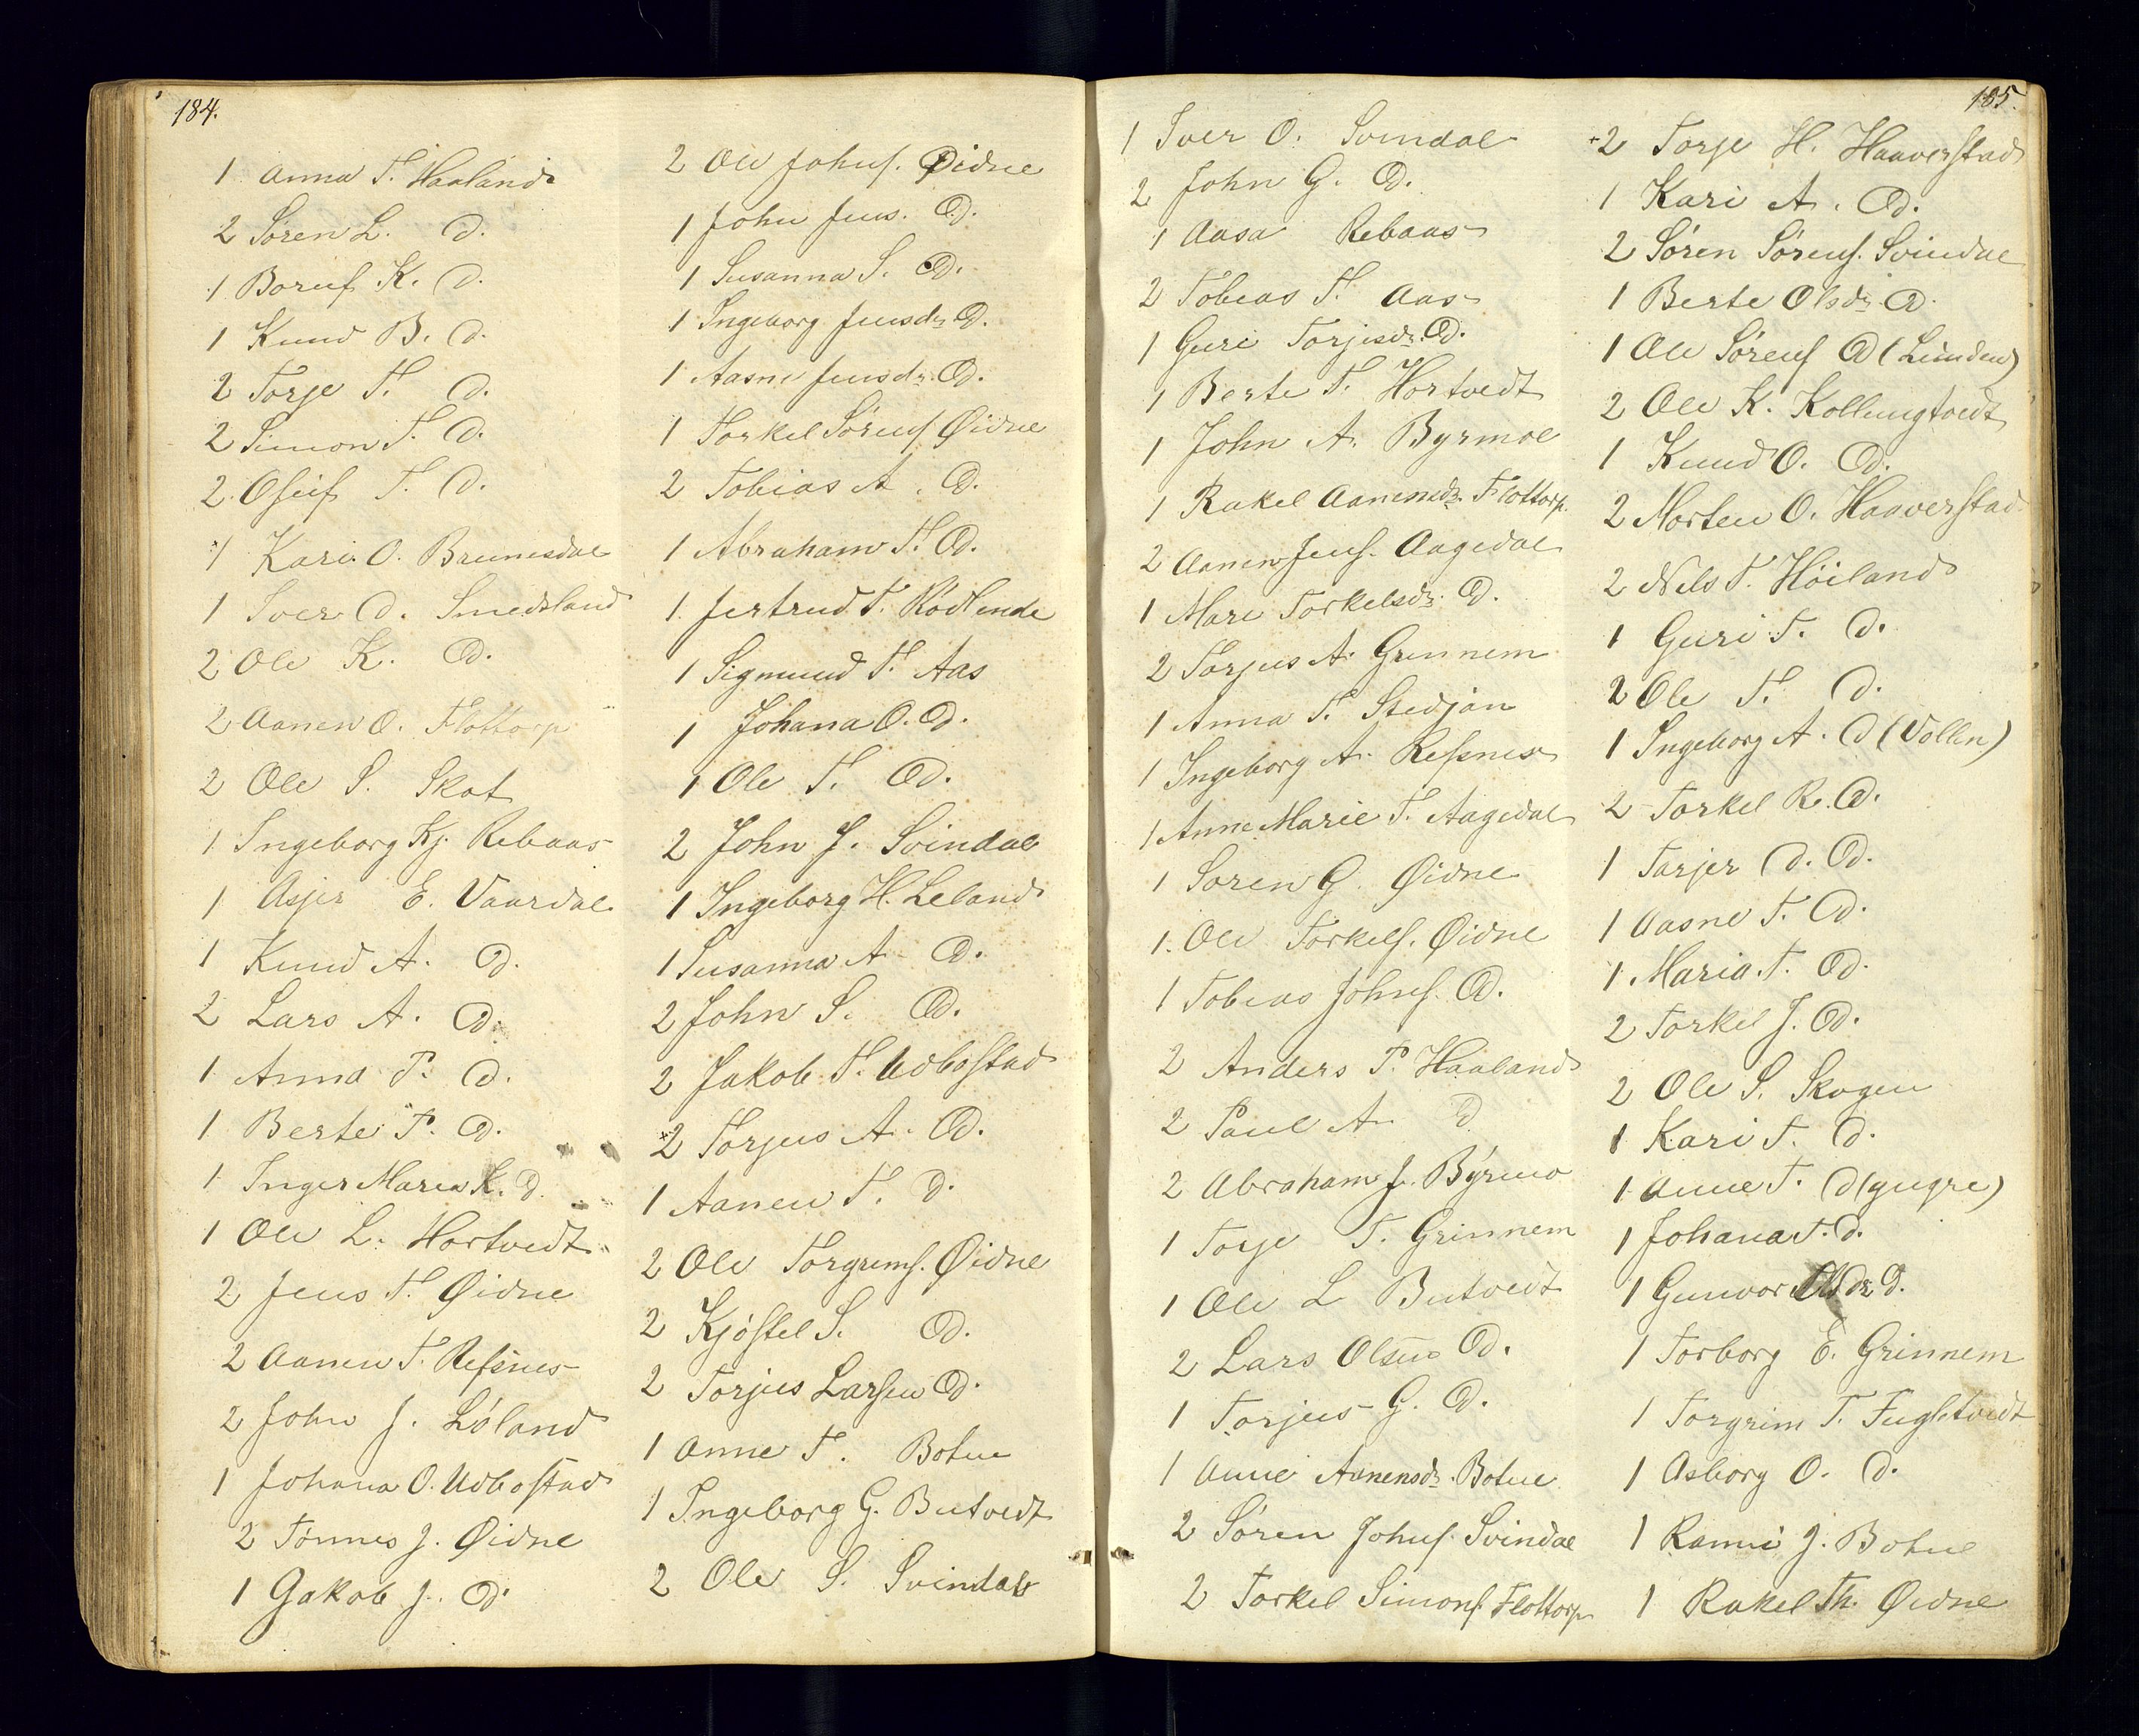 184.
1 Anna T. Haaland
2 Søren L. D.
1 Boruf K. D.
1 Knud B. D.
2 Torje T. D.
2 Simon T. D.
2. Oseif T. D.
1 Kari O. Brunesdal
1 Iver D. Smedsland
2 Ole K. D.
2 Aanen O. Flottorp
2 Ole S. Skot
1 Ingeborg Kj. Rebaas
1 Asjer E. Vaardal
1 Knud A. D.
2 Lars A. D.
1 Anna P. D.
1 Berte P. D.
1 Inger Maria K. D.
1 Ole L. Hortvedt
2 Jens T. Øidne
2 Aanen T. Refsnes
2 John J. Løland
1 Johana O. Udbostad
2 Tønnes J. Øidne
1 Gakob J. D.
2 Ole Johns. Øidne
1 John Jens. D.
1 Susanna S. D.
1 Ingeborg Jensdr D.
1 Aasne Jensdr. D.
1 Torkel Sørens. Øidne
2 Tobias A. D.
1 Abraham T. D.
1. Jertrud T. Rødlende
1 Sigmund T. Aas
1 Johana O. D.
1 Ole T. D.
2 John J. Svindal
1 Ingeborg H. Leland
1 Susanna A. D.
2 John S. D.
2 Jakob T. Udbostad
2 Torjus A. D.
1 Aanen T. D.
2 Ole Torgrims. Øidne
2 Kjøstel S. D.
2 Torjus Larsen D.
1 Anne T. Botne
1 Ingeborg G. Butvedt
2 Ole S. Svindal
185.
1 Iver O. Svindal
2 John G. D.
1 Aasa Rebaas
2 Tobias T. Aas
1 Guri Torjusdr. D.
1 Berte T. Hortvedt
1 John A. Byrmoe
1 Rakel Aanensdr. Flottorp.
2 Aanen Jens. Aagedal
1 Mari Torkelsdr. D.
2 Torjus A. Grinnem
1 Anna T. Stedjan
1 Ingeborg A. Refsnes
1 Anne Marie T. Aagedal
1 Søren G. Øidne
1. Ole Torkels. Øidne
1 Tobias Johns. D.
2 Anders P. Haaland
2 Paul A. D
2 Abraham J. Byrmo
1 Torje T. Grinnem
1 Ole L Butvedt
2 Lars Olsen D.
1 Torjus G. D.
1 Anne Aanensdr. Botne
2 Søren Johns. Svindal
2 Torkel Simons. Flottorp
2 Torje H. Haaverstad
1 Kari A. D.
2 Søren Sørens. Svindal
1 Berte Olsdr D.
1 Ole Sørens D (Lunden)
2 Ole K. Kollungtvedt
1 Knud O. D.
2 Morten O. Haaverstad
2 Nels T. Høiland
1 Guri T. D.
2 Ole T. D.
1 Ingeborg A. D (Vollen)
2 Torkel R. D.
1 Tarjer D. D.
1 Aasne T. D.
1. Maria T. D.
2 Torkel J. D.
2 Ole S. Skogen
1 Kari T. D.
1 Anne T. D (yngre)
1 Johana T. D.
1 Gunvor Olsdr D.
1 Torborg E. Grinnem
1 Torgrim T. Fugletvedt
1 Asborg O. D.
1 Ranni J. Botne
1 Rakel Th. Øidne